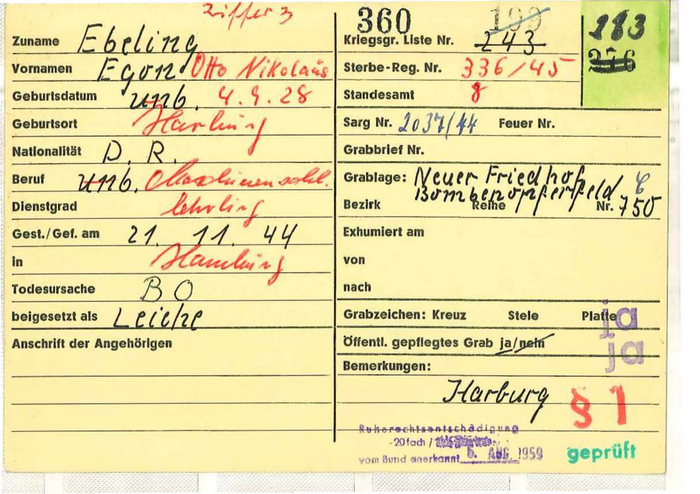 Ziffer 3
Zuname Ebeling
Vornamen Egon Otto Nikolaus
Geburtsdatum unb. 4.9.28
Geburtsort Harburg
Nationalität D. R.
Beruf unb. Maschinenschl.
Dienstgrad lehrling
Gest./Gef. am 21. 11. 44
in Hamburg
Todesursache BO
beigesetzt als Leiche
Anschrift der Angehörigen
360 183
Kriegsgr. Liste Nr. 243 276
Sterbe-Reg. Nr. 336/45
Standesamt 8
Sarg Nr. 2037/44 Feuer Nr.
Grabbrief Nr.
Grablage: Neuer Friedhof
Bombenopferfeld
Bezirk Reihe Nr. 750
Exhumiert am
von
nach
Grabzeichen: Kreuz Stele Platte ja
Öffentl. gepflegtes Grab ja/nein ja
Bemerkungen:
Harburg § 1
Ruherechtsentschädigung
-20fach /
vom Bund anerkannt 6. AUG. 1959
geprüft